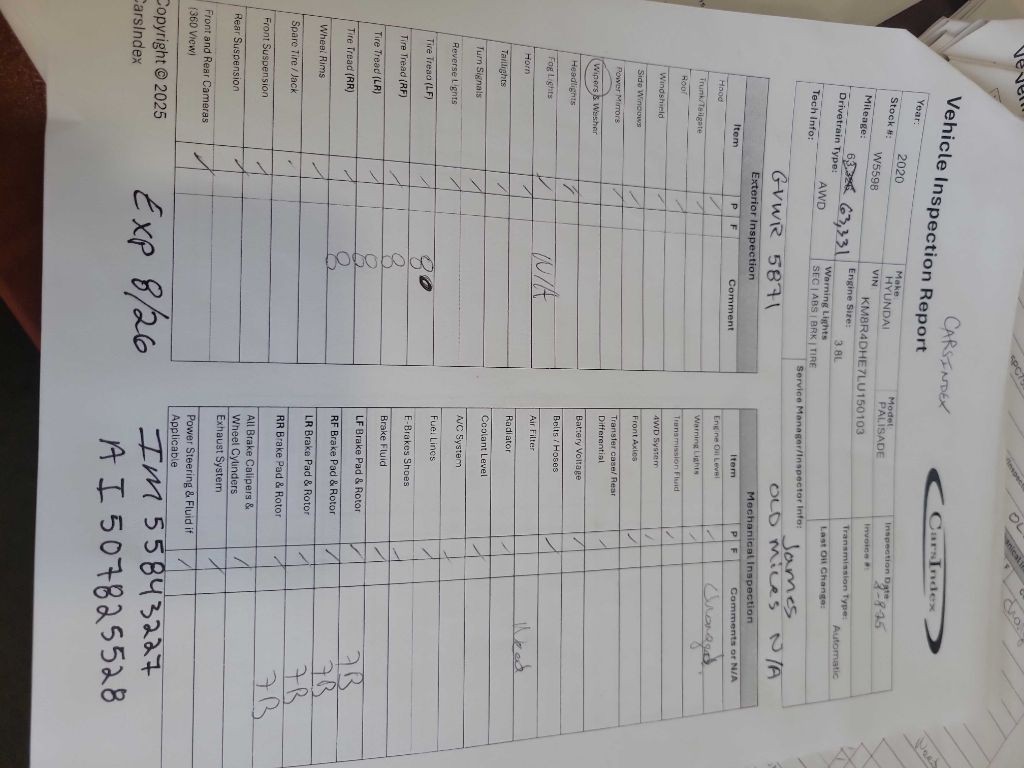 CARSINDEX
CarsIndex
Vehicle Inspection Report
Year: 2020
Make: HYUNDAI
Model: PALISADE
Inspection Date:
Stock #: W5598
VIN KM8R4DHE7LU150103
Invoice #:
Mileage: 63,231
Engine Size: 3.8L
Transmission Type: Automatic
Drivetrain Type: AWD
Warning Lights
SEC | ABS | BRK | TIRE
Last Oil Change:
Tech Info:
Service Manager/Inspector Info: James
GVWR 5871
OLD Miles N/A
Exterior Inspection
Item P F Comment
Hood ✓
Trunk/Tailgate ✓
Roof ✓
Windshield ✓
Side Windows ✓
Power Mirrors ✓
Wipers & Washer ✓
Headlights ✓
Fog Lights ✓ N/A
Horn ✓
Taillights ✓
Turn Signals ✓
Reverse Lights ✓
Tire Tread (LF) ✓ 8
Tire Tread (RF) ✓ 8
Tire Tread (LR) ✓ 8
Tire Tread (RR) ✓ 8
Wheel Rims ✓
Spare Tire / Jack
Front Suspension ✓
Rear Suspension ✓
Front and Rear Cameras
(360 View) ✓
Mechanical Inspection
Item P F Comments or N/A
Engine Oil Level ✓ Changed
Warning Lights ✓
Transmission Fluid ✓
4WD System ✓
Front Axles ✓
Transfer case/ Rear
Differential ✓
Battery Voltage ✓
Belts / Hoses ✓
Air Filter Need
Radiator ✓
Coolant Level ✓
A/C System ✓
Fuel Lines ✓
E-Brakes Shoes ✓
Brake Fluid ✓
LF Brake Pad & Rotor ✓ 7B
RF Brake Pad & Rotor ✓ 7B
LR Brake Pad & Rotor ✓ 7B
RR Brake Pad & Rotor ✓ 7B
All Brake Calipers &
Wheel Cylinders ✓
Exhaust System ✓
Power Steering & Fluid if
Applicable ✓
Exp 8/26
IM 55843227
AI 507825528
Copyright © 2025
CarsIndex